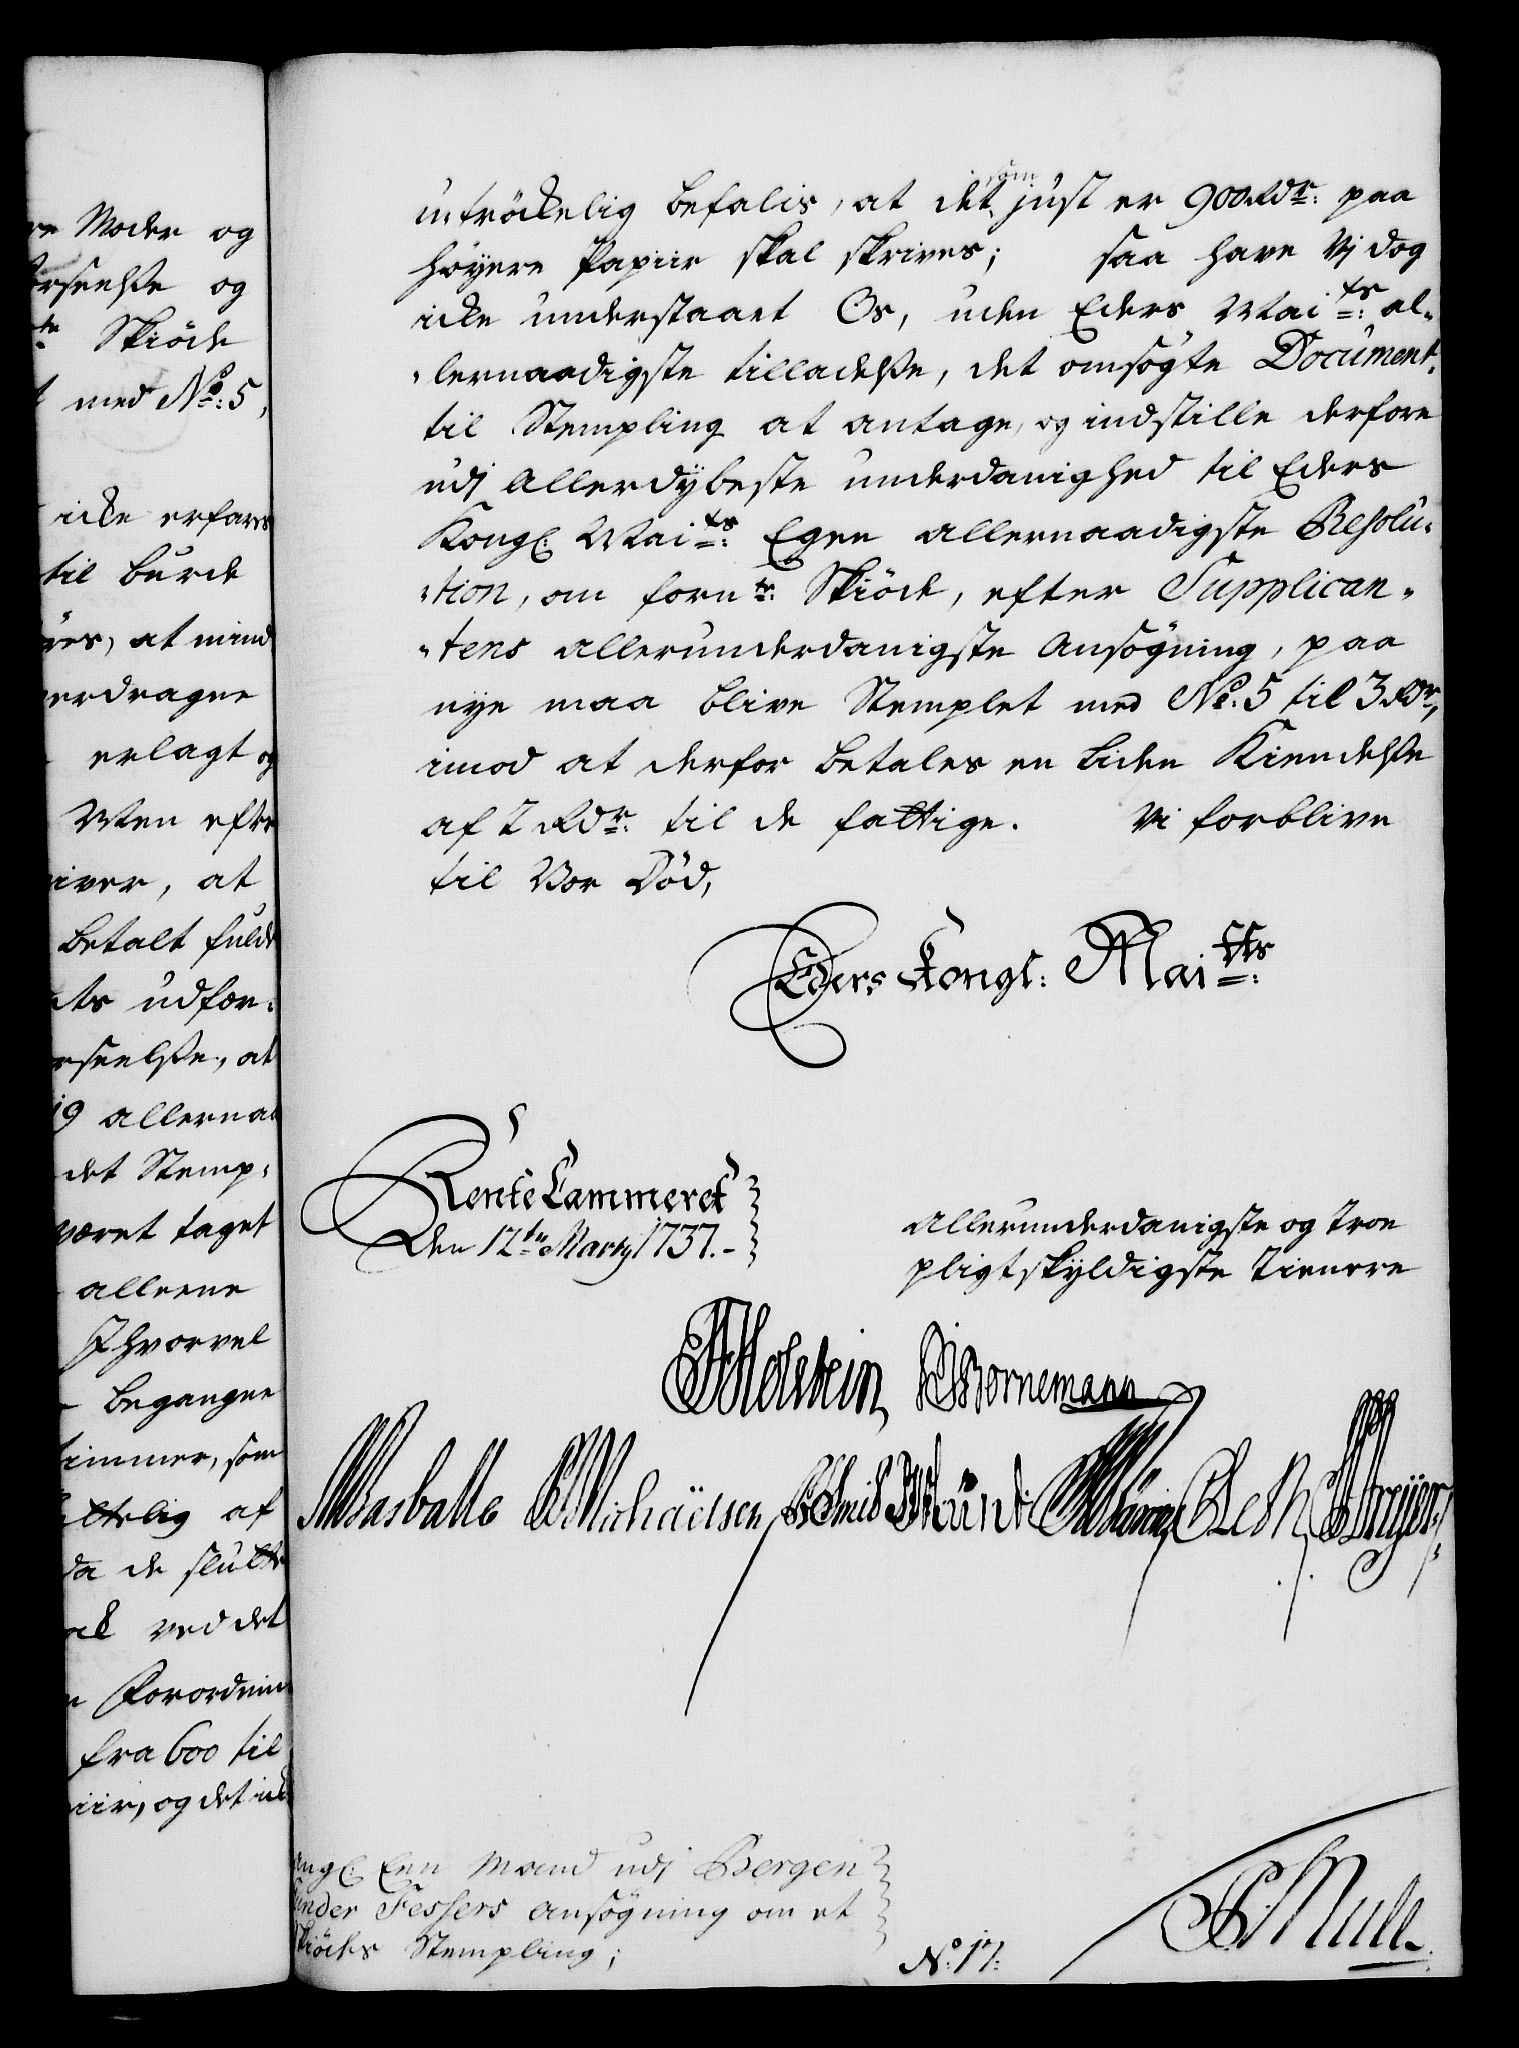 re Moder og
orseelsse og
te Skiöde
t med No: 5,
icke erfares
til burde
yes, at mind
verdragne
erlagt og
Men efter
iver, at
betalt fulde
udfor-
rseelsse, at
19 allernaa
det Stemp-
været taget
alleene
Ihvorvel
begangne
timmer, som
af
da de slutte
ved det
Forordnin
fra 600 til
iir, og det icke
udtröckelig befalis, at det som just er 900 Rdr: paa
höyere Papiir skal skrives; saa have Vi dog
icke understaaet Os, uden Eders Maits: al-
-lernaadigste tilladelsse, det omsögte Document
til Stempling at antage, og indstille derfore
udj Allerdÿbeste underdanighed til Eders
Kongl: Maits: Egen allernaadigste Resolu-
-tion, om fornte: Skiöde, efter Supplican-
-tens allerunderdanigste Ansögning, paa
nye maa blive Stemplet med No: 5 til 3 Rdr,
imod at derfor betales en liden Kiendelsse
af 2 Rdr: til de fattige. Vi forblive
til Vor Död,
Eders Kongl: Maitts:
RenteCammeret
Den 12te Marty 1737.-
Allerunderdanigste og troe
pligtskÿldigste tienere
Holstein Bornemann
Basballe Michaëlsen Smid Mund
ongl: Enn Mand udj Bergen
Pinder Fessers ansögning om et
Skiödes Stempling;
No: 17: